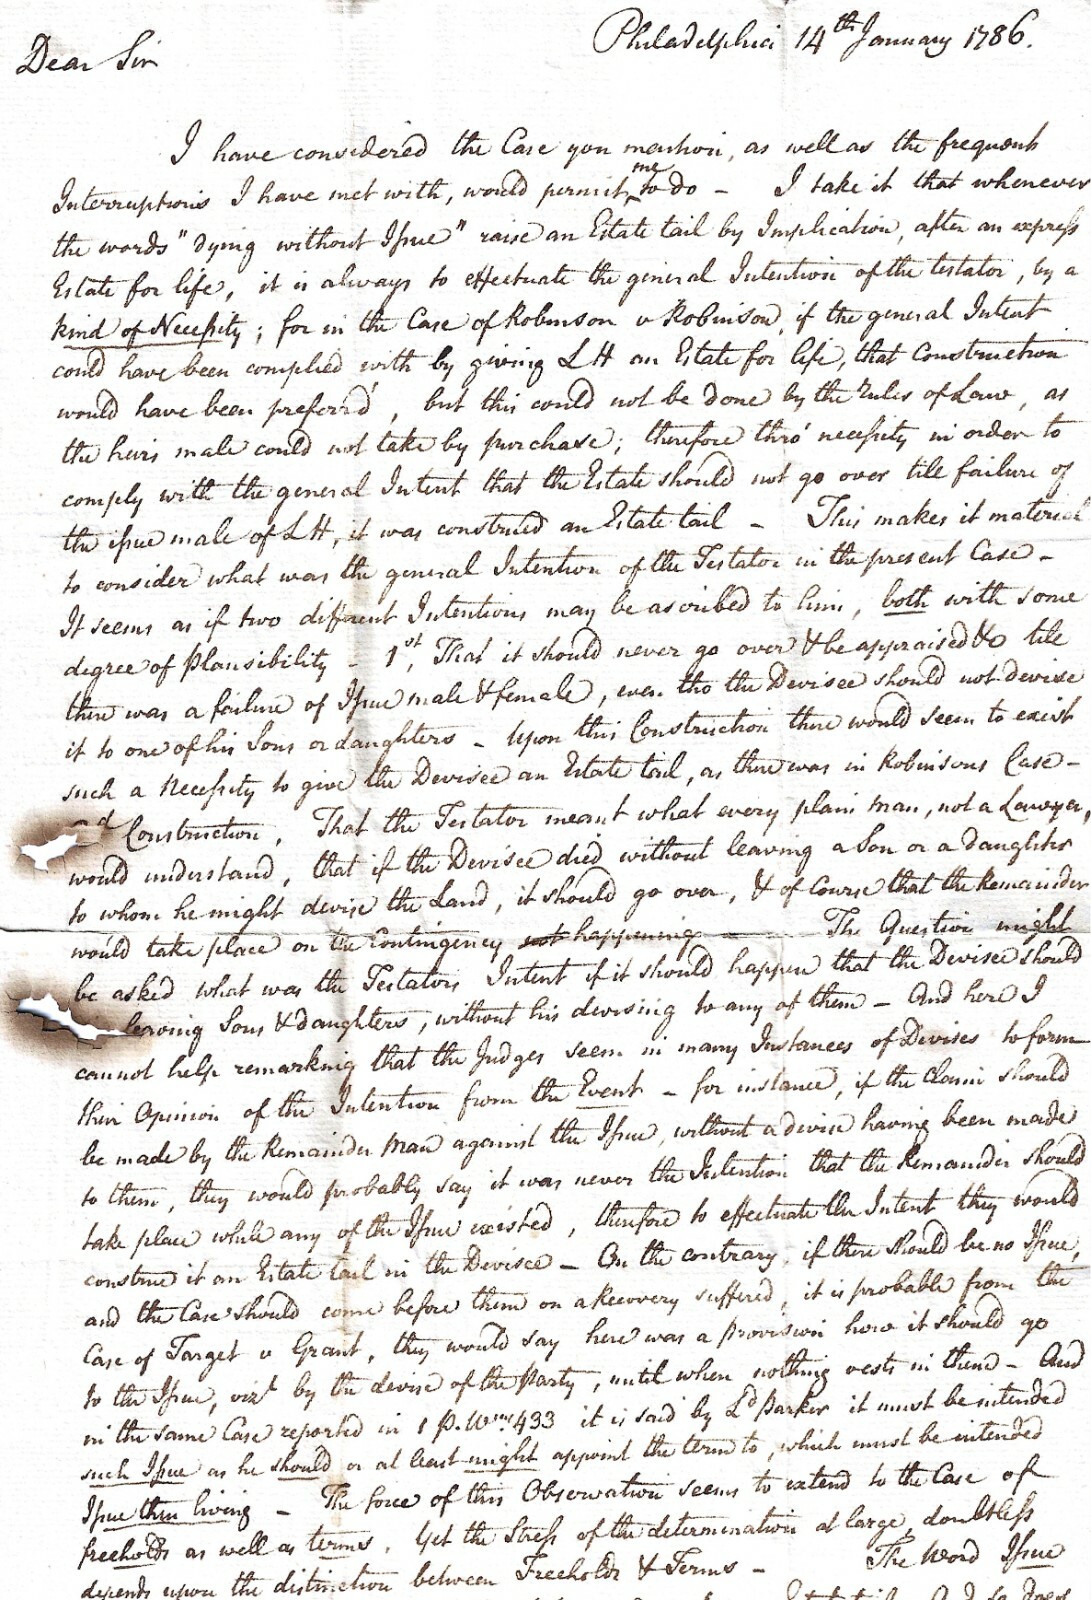 Philadelphia 14th January 1786.
Dear Sir
I have considered the Case you mention, as well as the frequent
Interruptions I have met with, would permit me to do – I take it that whenever
the words "dying without Issue" raise an Estate tail by Implication, after an express
Estate for life, it is always to effectuate the general Intention of the testator, by a
kind of Necessity; for in the Case of Robinson v Robinson, if the general Intent
could have been complied with by giving L H an Estate for life, that Construction
would have been preferr'd, but this could not be done by the rules of Law, as
the heirs male could not take by purchase; therefore thro' necessity in order to
comply with the general Intent that the Estate should not go over till failure of
the issue male of L H, it was construed an Estate tail – This makes it material
to consider what was the general Intention of the Testator in the present Case –
It seems as if two different Intentions may be ascribed to him, both with some
degree of plausibility – 1st, That it should never go over & be appraised &c till
there was a failure of Issue male & female, even tho the Devisee should not devise
it to one of his Sons or daughters – Upon this Construction there would seem to exist
such a Necessity to give the Devisee an Estate tail, as there was in Robinsons Case –
Construction, That the Testator meant what every plain Man, not a Lawyer,
would understand, that if the Devisee died without leaving a Son or a daughter
to whom he might devise the Land, it should go over, & of Course that the Remainder
would take place on the Contingency not happening — The Question might
be asked what was the Testators Intent if it should happen that the Devisee should
leaving Sons & daughters, without his devising to any of them – And here I
cannot help remarking that the Judges seem in many Instances of Devises to form
their Opinion of the Intention from the Event – for instance, if the Claim should
be made by the Remainder Man against the Issue, without a devise having been made
to them, they would probably say it was never the Intention that the Remainder should
take place while any of the Issue existed, therefore to effectuate the Intent they would
construe it an Estate tail in the Devisee – On the contrary, if there should be no Issue,
and the Case should come before them on a Recovery suffered, it is probable from the
Case of Target v Grant, they would say here was a provision how it should go
to the Issue, vizt by the devise of the Party, until when nothing vests in them – And
in the same Case reported in 1 P. Wms 433 it is said by Ld Parker it must be intended
such Issue as he should or at least might appoint the term to, which must be intended
Issue then living – The force of this Observation seems to extend to the Case of
freeholds as well as terms, Yet the Stress of the determination at large, doubtless
depends upon the distinction between Freeholds & Terms – The Word Issue